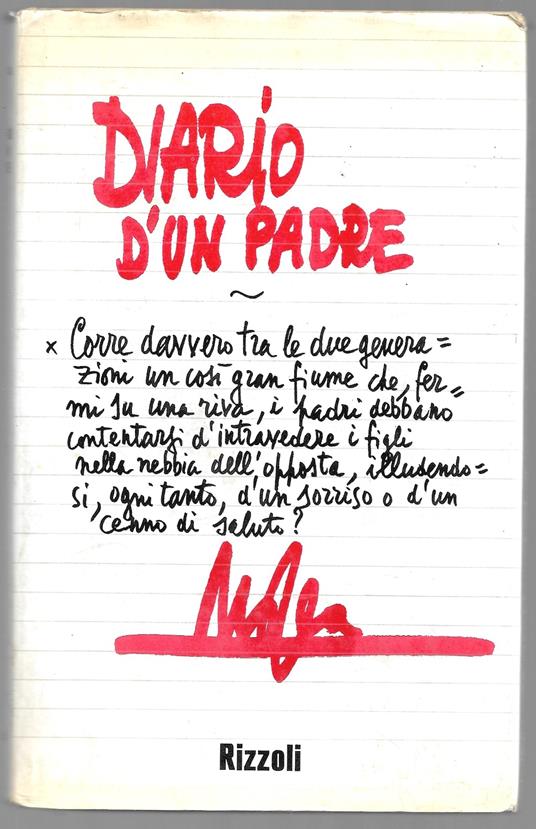 DIARIO
D'UN PADRE
~
x Corre davvero tra le due genera=
zioni un così gran fiume che, fer=
mi su una riva, i padri debbano
contentarsi d'intravedere i figli
nella nebbia dell'opposta, illudendo=
si, ogni tanto, d'un sorriso o d'un
cenno di saluto?
Rizzoli